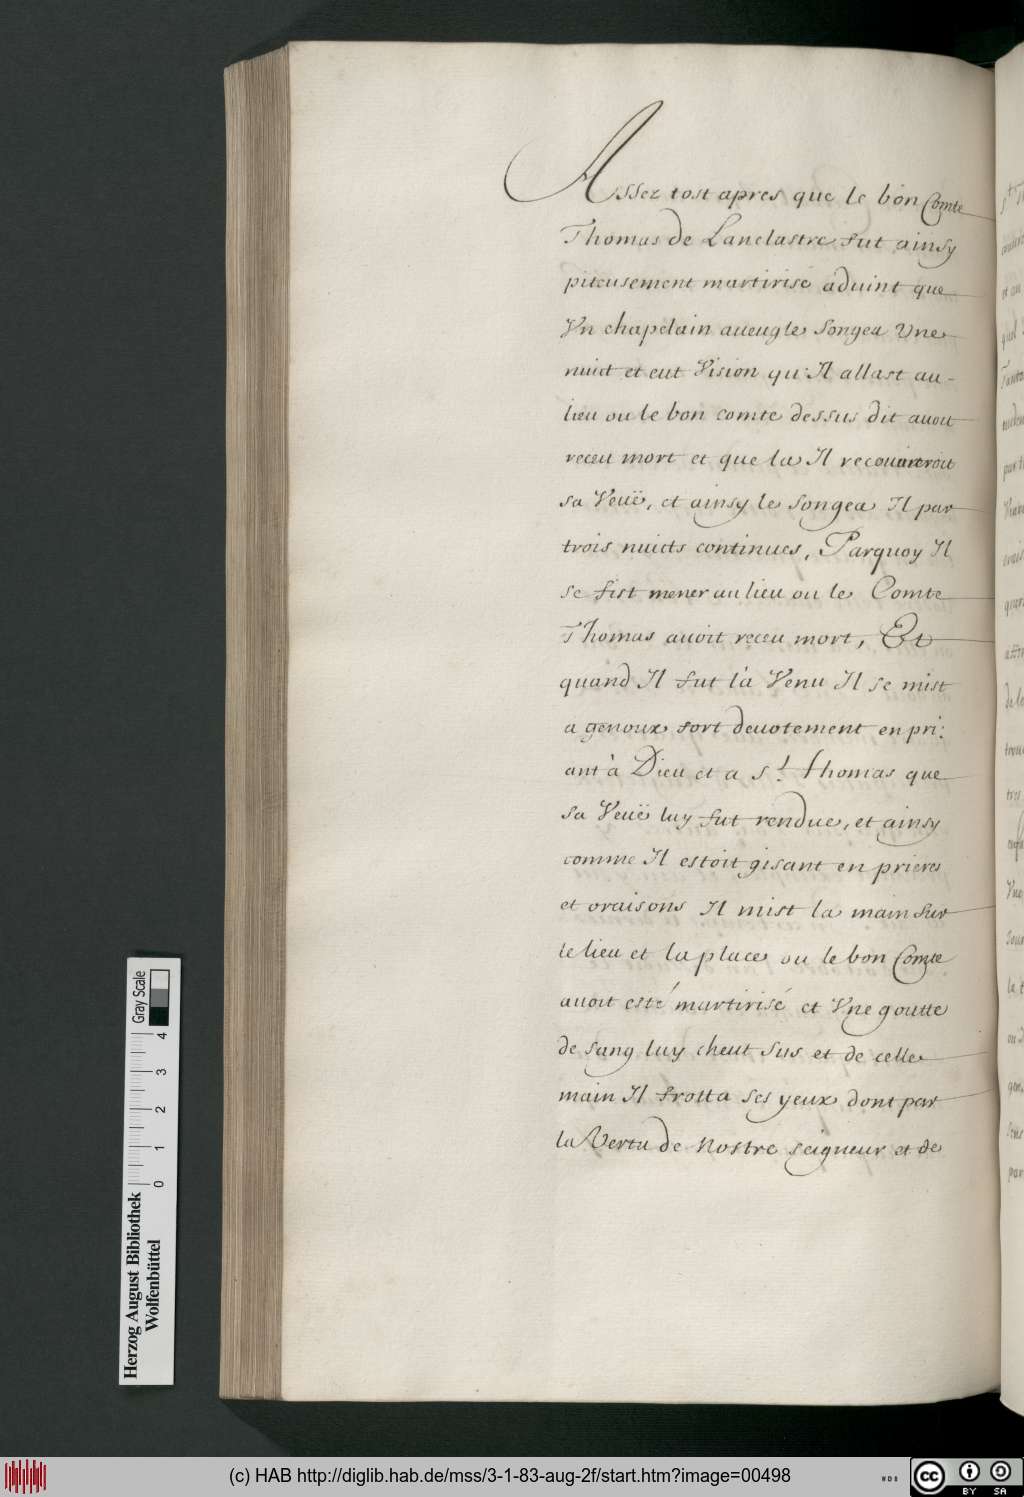 Assez tost apres que le bon Comte
Thomas de Lanclastre fut ainsy
piteusement martirisé aduint que
Vn chapelain aueugle songea Vne
nuict et eut Vision qu'Il allast au-
lieu ou le bon comte dessus dit auoit
receu mort et que la Il recouureroit
sa Veuë, et ainsy le songea Il par
trois nuicts continues, Parquoy Il
se fist mener au lieu ou le Comte
Thomas auoit receu mort, Et
quand Il fut là Venu Il se mist
a genoux fort deuotement en pri:
ant à Dieu et a St. thomas que
sa Veuë luy fut rendue, et ainsy
comme Il estoit gisant en prieres
et oraisons Il mist la main sur
le lieu et la place ou le bon Comte
auoit esté martirisé et Vne goutte
de sang luy cheut sus et de celle
main Il frotta ses yeux dont par
la Vertu de Nostre seigneur et de
Herzog August Bibliothek
Wolfenbüttel
0 1 2 3 4
Gray Scale
(c) HAB http://diglib.hab.de/mss/3-1-83-aug-2f/start.htm?image=00498
WDB
cc BY SA